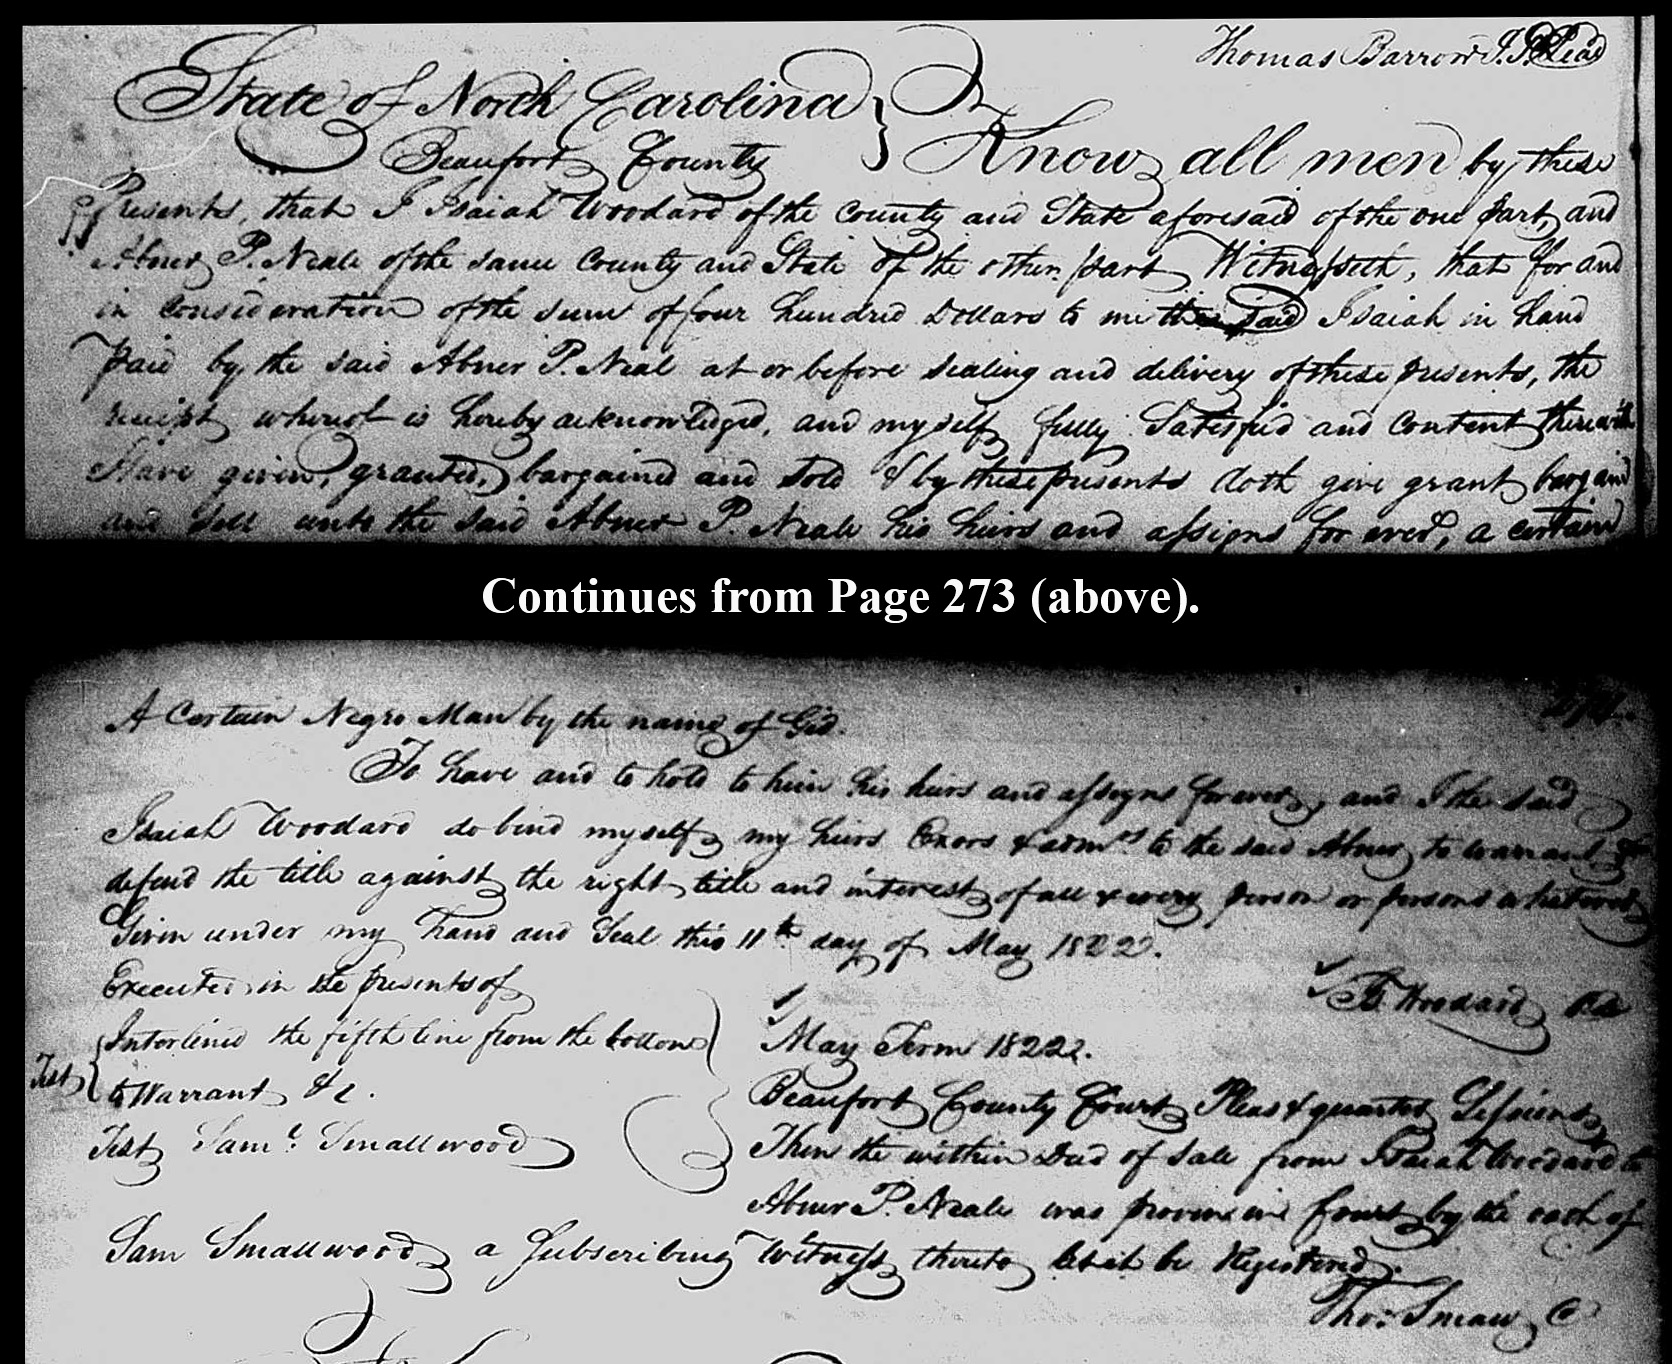 Thomas Barrow J.P. Seal
State of North Carolina }
Beaufort County } Know all men by these
Presents, that I Isaiah Woodard of the County and State aforesaid of the one part, and
Abner P. Neale of the same County and State of the other part Witnesseth, that for and
in consideration of the sum of four hundred Dollars to me the said Isaiah in hand
paid by the said Abner P. Neal at or before sealing and delivery of these presents, the
receipt whereof is hereby acknowledged, and myself fully Satisfied and Content therewith
Have given, granted, bargained and sold & by these presents doth give grant bargain
and Sell unto the said Abner P. Neale his heirs and assigns for ever, a certain
Continues from Page 273 (above).
274
A Certain Negro Man by the name of Gid.
To have and to hold to him his heirs and assigns forever, and I the said
Isaiah Woodard do bind myself my heirs Exors & admrs to the said Abner to warrant &
defend the title against the right title and interest of all & every person or persons whatever
Given under my hand and Seal this 11th day of May 1822.
Executed in the presents of
Is Woodard Seal
Interlined the fifth line from the bottom
Test to Warrant &c.
Test Saml. Smallwood
May Term 1822.
Beaufort County Court Pleas & quarter Sessions
Then the within Deed of Sale from Isaiah Woodard to
Abner P. Neale was proven in Court by the oath of
Sam Smallwood a Subscribing Witness thereto let it be Registered.
Thos. Smaw C